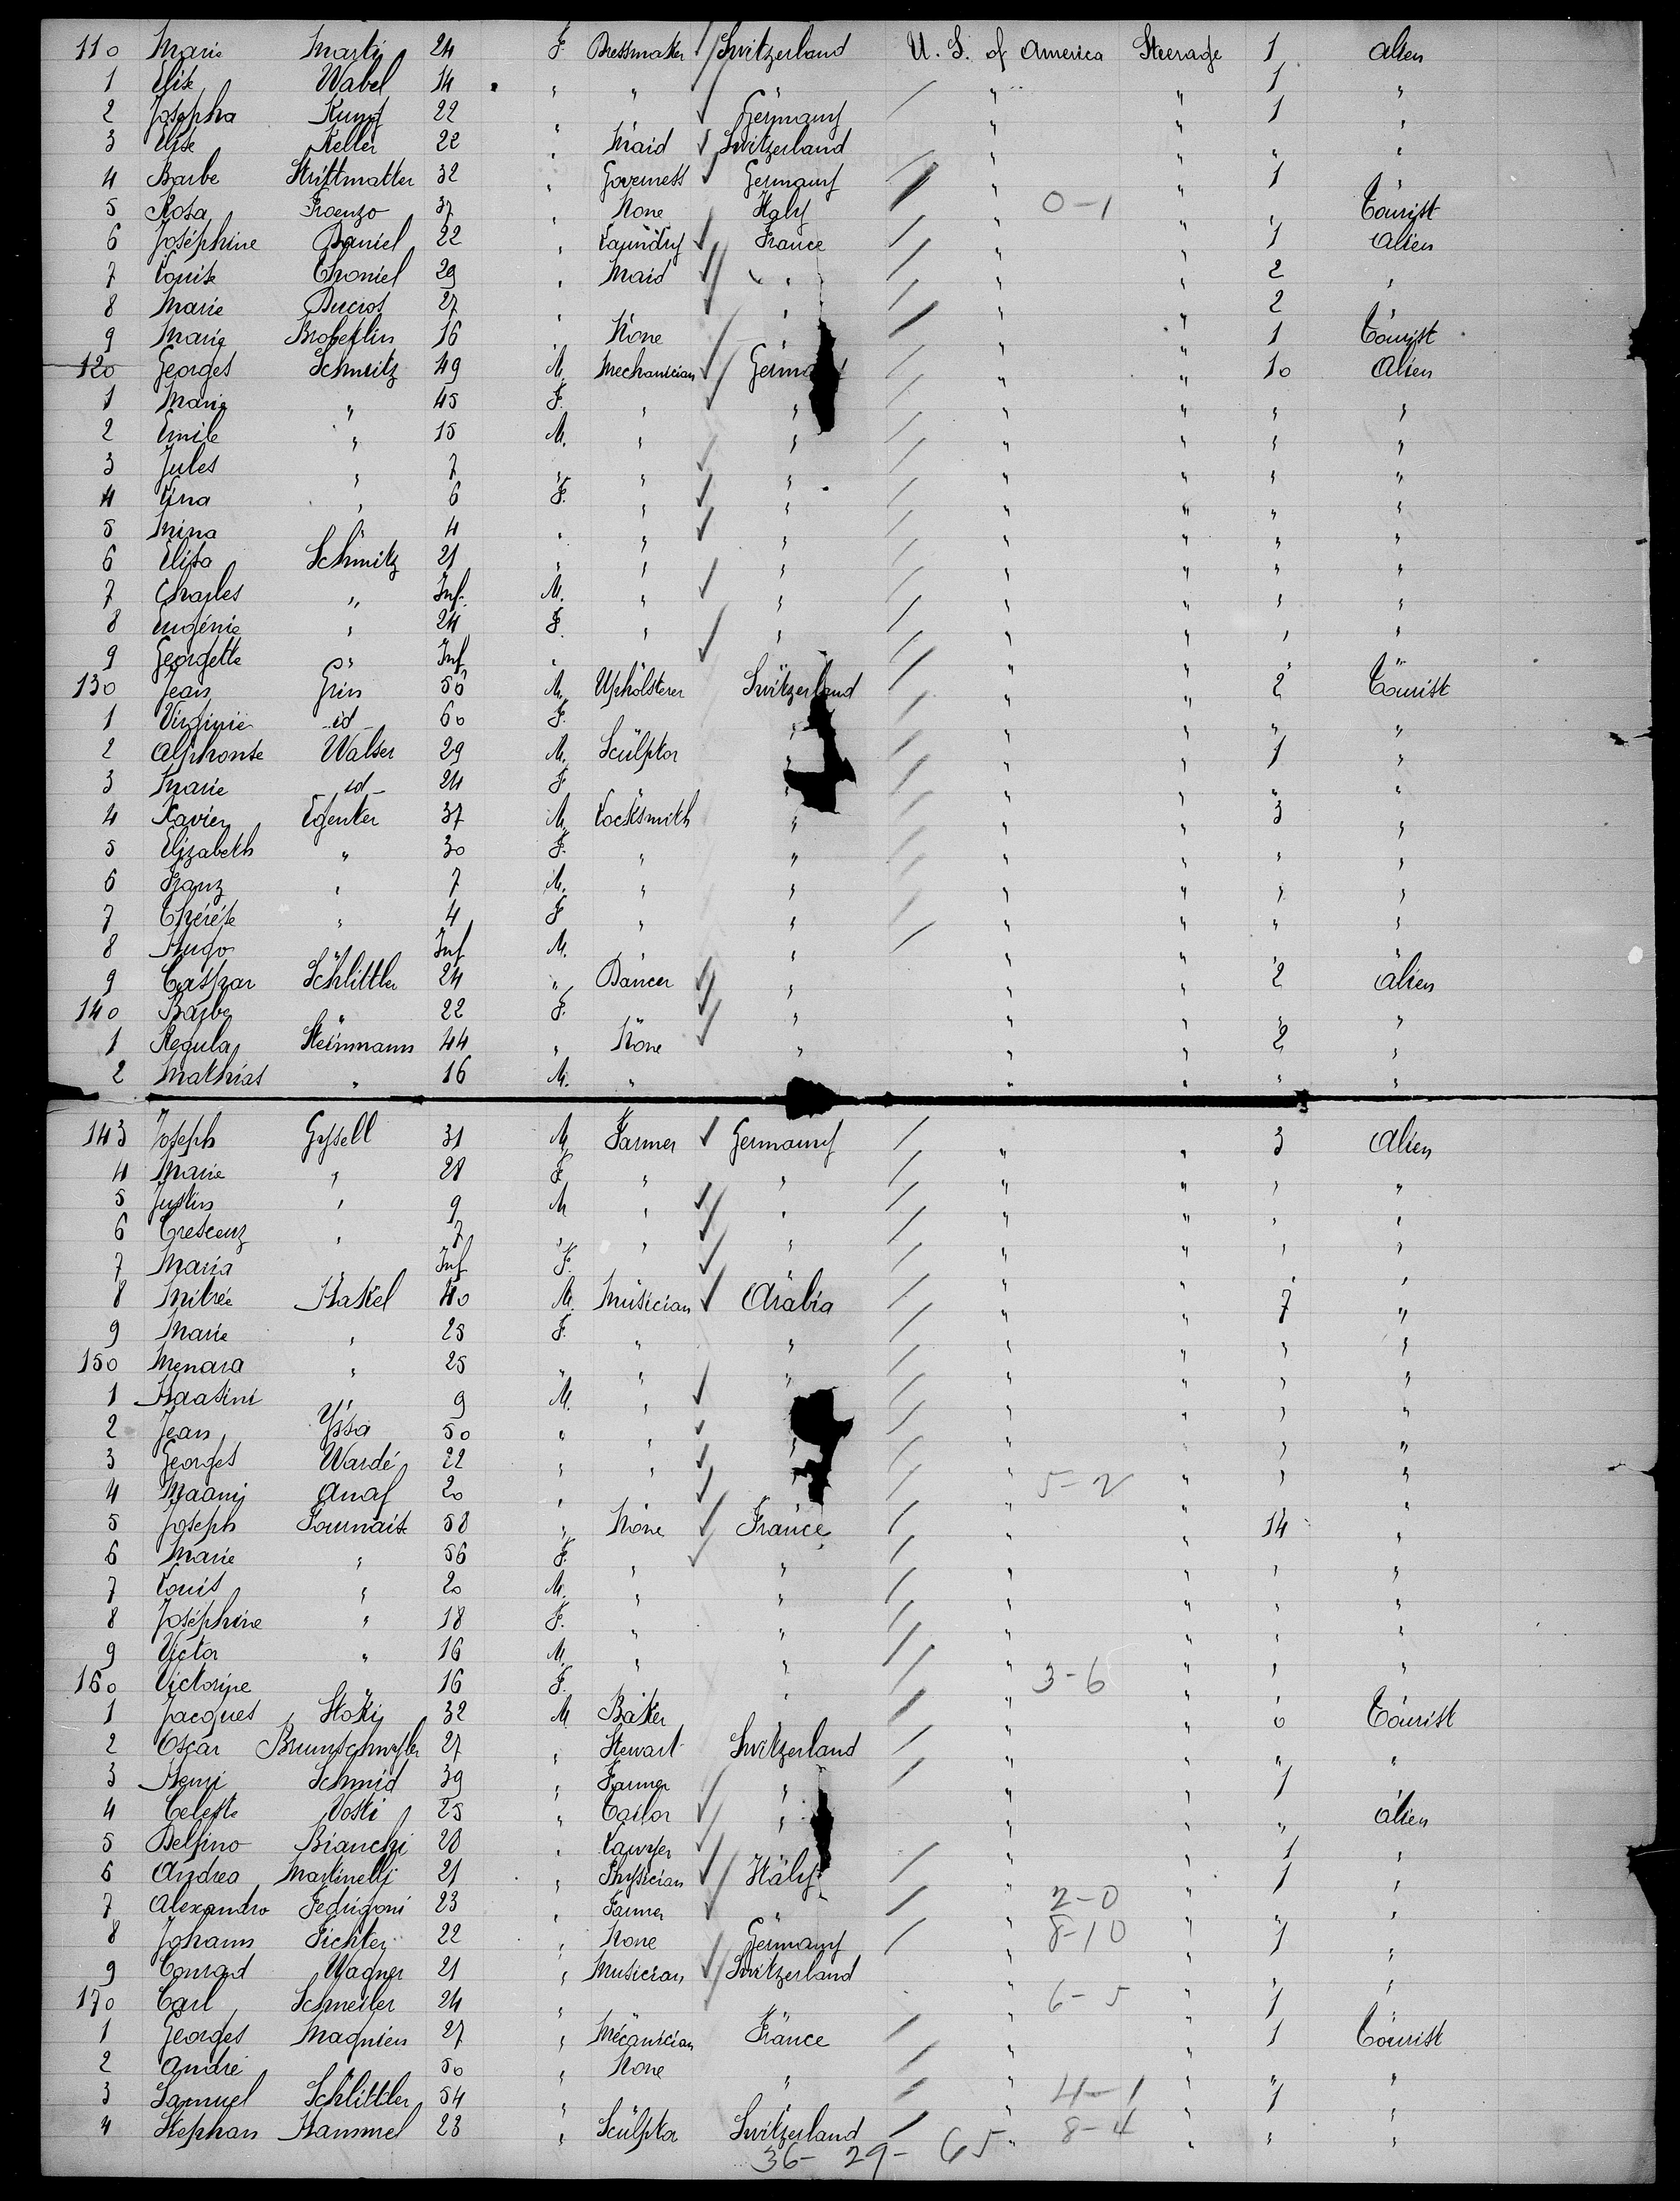 110 Marie Marti 24 F. Dressmaker Switzerland U. S. of America Steerage 1 Alien
1 Elise Wabel 14 " " " " " 1 "
2 Josepha Kumpf 22 " " Germany " " 1 "
3 Elise Keller 22 " Maid Switzerland " " " "
4 Barbe Strittmatter 32 " Governess Germany " " 1 "
5 Rosa 37 " None Italy " 0-1 " " Tourist
6 Joséphine Daniel 22 " Laundry France " " 1 Alien
7 Louise Choniel 29 " Maid " " " 2 "
8 Marie Ducrot 27 " " " " 2 "
9 Marie 16 " None " " " 1 Tourist
120 Georges Schmitz 49 M. Mechanician Germa " " 10 Alien
1 Marie " 45 F. " " " " " "
2 Emile " 15 M. " " " " " "
3 Jules " 7 " " " " " " "
4 Lina " 6 F. " " " " " "
5 Mina " 4 " " " " " " "
6 Elisa Schmitz 21 " " " " " " "
7 Charles " Inf. M. " " " " " "
8 Eugénie " 24 F. " " " " " "
9 Georgette " Inf " " " " "
130 Jean Grin 56 M. Upholsterer Switzerland " " 2 Tourist
1 Virginie id 60 F. " " " " "
2 Alphonse Walser 29 M. Sculptor " " " 1 "
3 Marie id 24 F " " " " "
4 Xavier Egenter 37 M. Locksmith " " " 3 "
5 Elizabeth " 30 F. " " " " " "
6 Franz " 7 M. " " " " " "
7 Thérése " 4 F " " " " " "
8 Hugo " Inf M. " " " " "
9 Caspar Schlittler 24 " Dancer " " " 2 Alien
140 Barbe " 22 F. " " " " "
1 Regula Steinmann 44 " None " " " 2 "
2 Mathias " 16 M. " " " " "
143 Joseph Gysell 31 M. Farmer Germany " " 3 Alien
4 Marie " 28 F " " " " " "
5 Justin " 9 M " " " " " "
6 Crescenz " 7 " " " " " " "
7 Maria " Inf F. " " " "
8 Mitrée Hakel 40 M. Musician Arabia " " 7 "
9 Marie " 25 F. " " " " " "
150 Menara " 25 " " " " " " "
1 Haasini " 9 M. " " " " "
2 Jean Yssa 50 " " " " " "
3 Georges Wardé 22 " " " " " " "
4 Maanij Anaf 20 " " 5-2 " "
5 Joseph 58 " None France " " 14 "
6 Marie " 56 F. " " " " " "
7 Louis " 20 M. " " " " " "
8 Joséphine " 18 F. " " " " " "
9 Victor " 16 M. " " " " " "
160 Victorine " 16 F. " " 3-6 " "
1 Jacques 32 M. Baker " " 0 Tourist
2 Oscar Brunschwyler 27 " Stewart Switzerland " " " "
3 Henri Schmid 39 " Farmer " " " 1
4 Celeste Voski 25 " Tailor " " " " Alien
5 Delfino Bianchi 28 " Lawyer " " 1 "
6 Andrea Martinelli 21 " Physician Italy " " 1 "
7 Alexandro Fedrigoni 23 " Farmer " " 2-0 " " "
8 Johann Fichter 22 " None Germany " 8-10 " 1 "
9 Conrad Wagner 21 " Musician Switzerland " " " "
170 Carl Schneiler 24 " " 6-5 " 1
1 Georges Magnien 27 " Mécanician France " " 1 Tourist
2 André " 50 " None " " " " "
3 Samuel Schlittler 54 " " 4-1 " 1 "
4 Stephan Hammel 23 " Sculptor Switzerland " 8-4 " " "
36- 29- 65